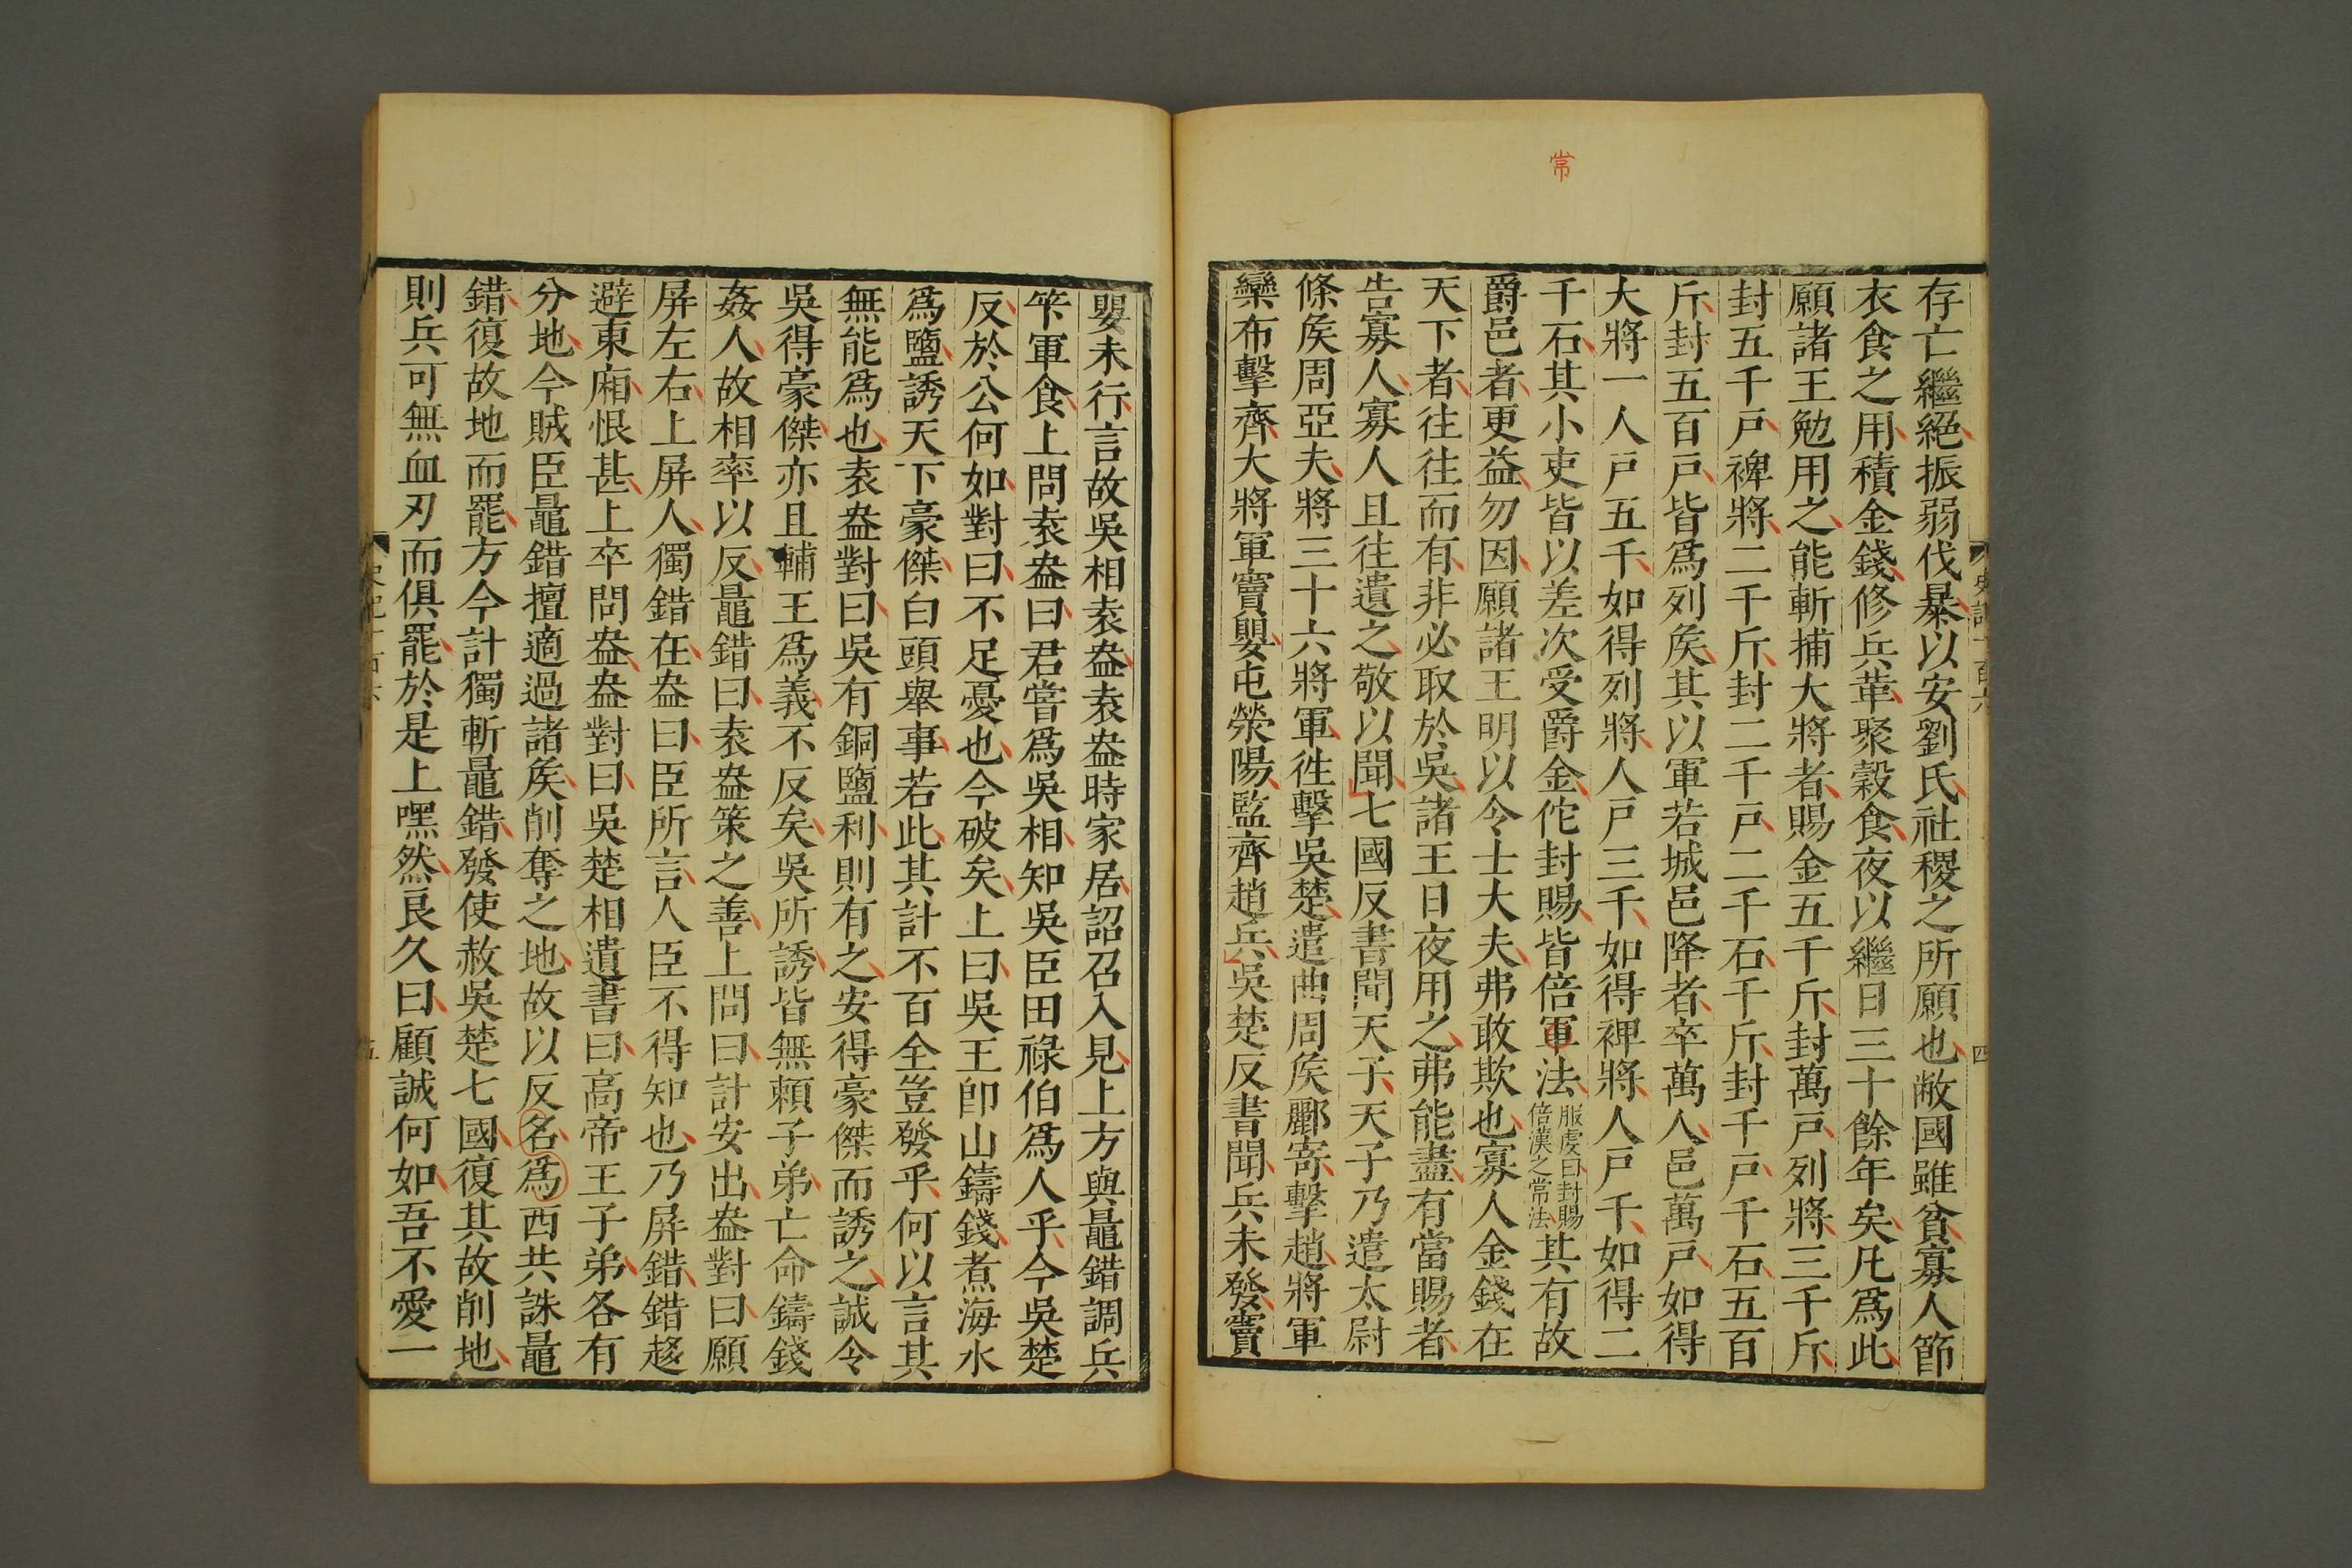 常
存亡繼絕振弱伐暴以安劉氏社稷之所願也敝國雖貧寡人節
衣食之用積金錢修兵革聚穀食夜以繼日三十餘年矣凡爲此
願諸王勉用之能斬捕大將者賜金五千斤封萬戸列將三千斤
封五千戸裨將二千斤封二千戸二千石千斤封千戸千石五百
斤封五百戸皆爲列矦其以軍若城邑降者卒萬人邑萬戸如得
大將一人戸五千如得列將人戸三千如得裨將人戸千如得二
千石其小吏皆以差次受爵金佗封賜皆倍軍法服虔曰封賜倍漢之常法其有故
爵邑者更益勿因願諸王明以令士大夫弗敢欺也寡人金錢在
天下者往往而有非必取於吳諸王日夜用之弗能盡有當賜者
告寡人寡人且往遺之敬以聞七國反書聞天子天子乃遣太尉
條矦周亞夫將三十六將軍徃擊吳楚遣曲周矦酈寄擊趙將軍
欒布擊齊大將軍竇嬰屯滎陽監齊趙兵吳楚反書聞兵未發竇
史記一百六
四
嬰未行言故吳相袁盎袁盎時家居詔召入見上方與鼂錯調兵
笇軍食上問袁盎曰君嘗爲吳相知吳臣田祿伯爲人乎今吳楚
反於公何如對曰不足憂也今破矣上曰吳王卽山鑄錢煮海水
爲鹽誘天下豪傑白頭舉事若此其計不百全豈發乎何以言其
無能爲也袁盎對曰吳有銅鹽利則有之安得豪傑而誘之誠令
吳得豪傑亦且輔王爲義不反矣吳所誘皆無賴子弟亡命鑄錢
姦人故相率以反鼂錯曰袁盎策之善上問曰計安出盎對曰願
屏左右上屏人獨錯在盎曰臣所言人臣不得知也乃屏錯錯趍
避東廂恨甚上卒問盎盎對曰吳楚相遺書曰高帝王子弟各有
分地今賊臣鼂錯擅適過諸矦削奪之地故以反名爲西共誅鼂
錯復故地而罷方今計獨斬鼂錯發使赦吳楚七國復其故削地
則兵可無血刃而俱罷於是上嘿然良久曰顧誠何如吾不愛一
五